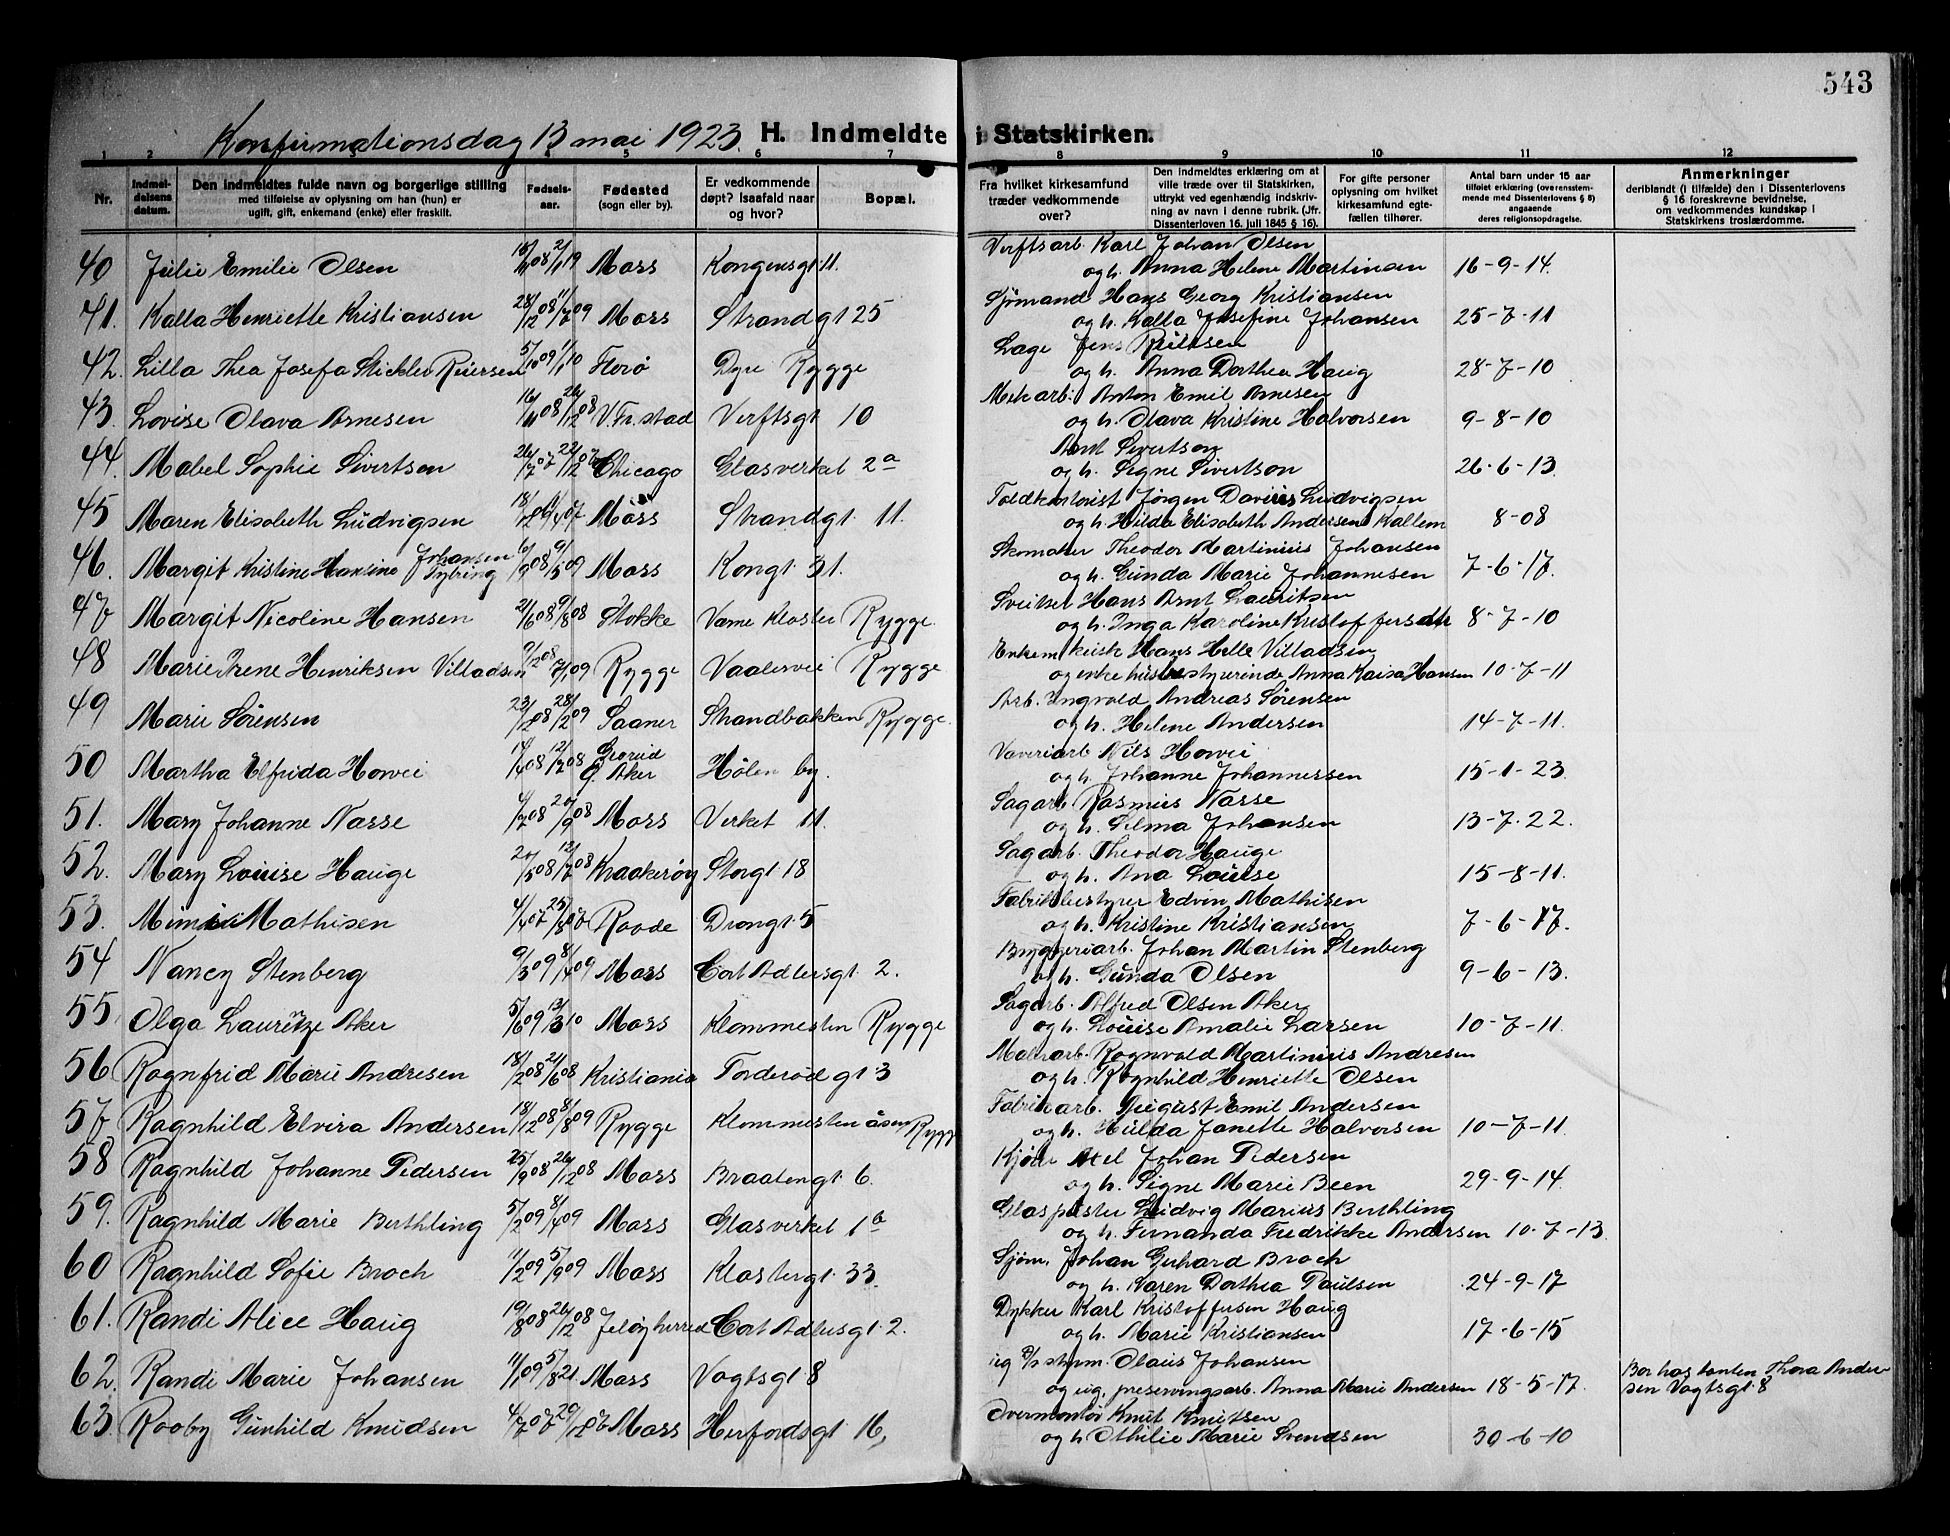 543
Konfirmationsdag 13 mai 1923. H. Indmeldte i Statskirken.
1 2 3 4 5 6 7 8 9 10 11 12
Nr.
Indmel-
delsens
datum.
Den indmeldtes fulde navn og borgerlige stilling
med tilføielse av oplysning om han (hun) er
ugift, gift, enkemand (enke) eller fraskilt.
Fødsels-
aar.
Fødested
(sogn eller by).
Er vedkommende
døpt? Isaafald naar
og hvor?
Bopæl.
Fra hvilket kirkesamfund
træder vedkommende
over?
Den indmeldtes erklæring om at
ville træde over til Statskirken,
uttrykt ved egenhændig indskriv-
ning av navn i denne rubrik. (Jfr.
Dissenterloven 16. juli 1845 § 16).
For gifte personer
oplysning om hvilket
kirkesamfund egte-
fællen tilhører.
Antal barn under 15 aar
tilføiet erklæring (overensstem-
mende med Dissenterlovens § 8)
angaaende
deres religionsopdragelse.
Anmerkninger
deriblandt (i tilfælde) den i Dissenterlovens
§ 16 foreskrevne bevidnelse,
om vedkommendes kundskap i
Statskirkens troslærdomme.
Verftsarb. Karl Johan Olsen
40 Julie Emilie Olsen 15/11 08 2/11 19 Moss Kongensgt 11. og h. Anna Helene Martinsen 16-9-14.
Sjømand Hans Georg Kristiansen
41. Kalla Henriette Kristiansen 28/12 08 11/7 09 Moss Strandgt 25 og h. Kalla Josefine Johansen 25-7-11
Læge Jens Reiersen
42. Lilla Thea Josefa Stickler Reiersen 5/10 09 1/1 10 Florø Dyre Rygge og h. Anna Dorthea Haug 28-7-10
Mek arb. Anton Emil Arnesen
43. Lovise Olava Arnesen 16/11 08 26/12 08 V. Fr. stad Verftsgt 10 og h. Olava Kristine Halvorsen 9-8-10
Arnt Sivertson
44. Mabel Sophie Sivertson 26/7 07 22/12 07 Chicago Glasverket 2a og h. Signe Sivertson 26-6-13.
Toldkontorist Jørgen Davius Ludvigsen
45 Maren Elisabeth Ludvigsen Moss Strandgt. 11. og h. Hilda Elisabeth Andersen Kallem 8-08
Skomaker Theodor Martinius Johansen
46. Margit Kristine Hansine Johansen 6/9 08 9/5 09 Moss Kongt. 31. og h. Gunda Marie Johannesen 7-6-17.
Sveitser Hans Arnt Lauritsen
47 Margit Nicoline Hansen 21/6 08 9/8 08 Stokke Værne Kloster Rygge. og h. Inga Karoline Kristoffersdtr 8-7-10
Enkem. kusk Hans Helle Villadsen
48 Marie Irene Henriksen Villadsen 9/2 08 7/1 09 Rygge Vaalervei Rygge og enke husbestyrerinde Anna Kaisa Hansen 10-7-11
Arb. Ingvald Andreas Sörensen
49 Marie Sørensen 23/12 08 28/2 09 Saaner Strandbakken Rygge. og h. Helene Andersen 14-7-11.
Væveriarb Nils Hovei
50 Martha Elfrida Hovei 14/4 08 12/2 08 Grorud Ø. Aker Hölen by. og h. Johanne Johannessen 15-1-23.
Sagarb Rasmus Næsse
51. Mary Johanne Næsse 4/7 08 20/9 08 Moss Verket 11. og h. Selma Johansen 13-7-22.
Sagarb. Theodor Hauge
52. Mary Louise Hauge 20/5 08 12/7 08 Kraakerøy Storgt 18 og h. Ana Louise 15-8-11.
Fabrikbestyrer Edvin Mathisen
53. Mimi Mathisen 4/4 07 25/8 07 Raade Drongt. 5 og h. Kristine Kristiansen 7-6-17.
Bryggeriarb. Johan Martin Stenberg
54 Nancy Stenberg 9/3 09 8/4 09 Moss Cort Adlersgt. 2. og h. Gunda Olsen 9-6-13.
Sagarb. Alfred Olsen Aker
55 Olga Lauretze Aker 5/6 09 13/3 10 Moss Klommesten Rygge og h. Louise Amalie Larsen 10-7-11.
Malerarb. Ragnvald Martinius Andresen
56 Ragnfrid Marie Andresen 18/2 08 21/6 08 Kristiania Torderødgt 3 og h. Ragnhild Henriette Olsen
Fabrikarb. August Emil Andersen
57 Ragnhild Elvira Andersen 18/12 08 8/8 09 Rygge Klommesten åsen Rygg og h. Hulda Janette Halvorsen 10-7-11.
Kjøre Axel Johan Pedersen
58 Ragnhild Johanne Pedersen 25/9 08 26/12 08 Moss Braatengt 6. og h. Signe Marie Been 29-9-14.
Glaspuster Ludvig Marius Berthling
59. Ragnhild Marie Berthling 5/2 09 8/4 09 Moss Glasverket 1b og h. Fernanda Fredrikke Andersen 10-7-13.
Sjøm. Johan Gerhard Broch
60 Ragnhild Sofie Broch 11/2 09 5/9 09 Moss Klostergt. 33. og h. Karen Dorthea Paulsen 24-9-17
Dykker Karl Kristoffersen Haug
61. Randi Alice Haug 19/8 08 26/12 08 Jeløy herred Cort Adlersgt. 2. og h. Marie Kristiansen 17-6-15
ug styrm. Olaus Johansen
62. Randi Marie Johansen 11/1 09 5/8 21. Moss Vogtsgt 8 og ug. preserveringsarb. Anna Marie Andersen 18-5-17. Bor hos tanten Thora Ander-
sen Vogtsgt. 8
Overmontör Knut Knutsen
63. Rooby Gunhild Knudsen Moss Herfordsgt 16, og h Othilie Marie Svendsen 30-6-10